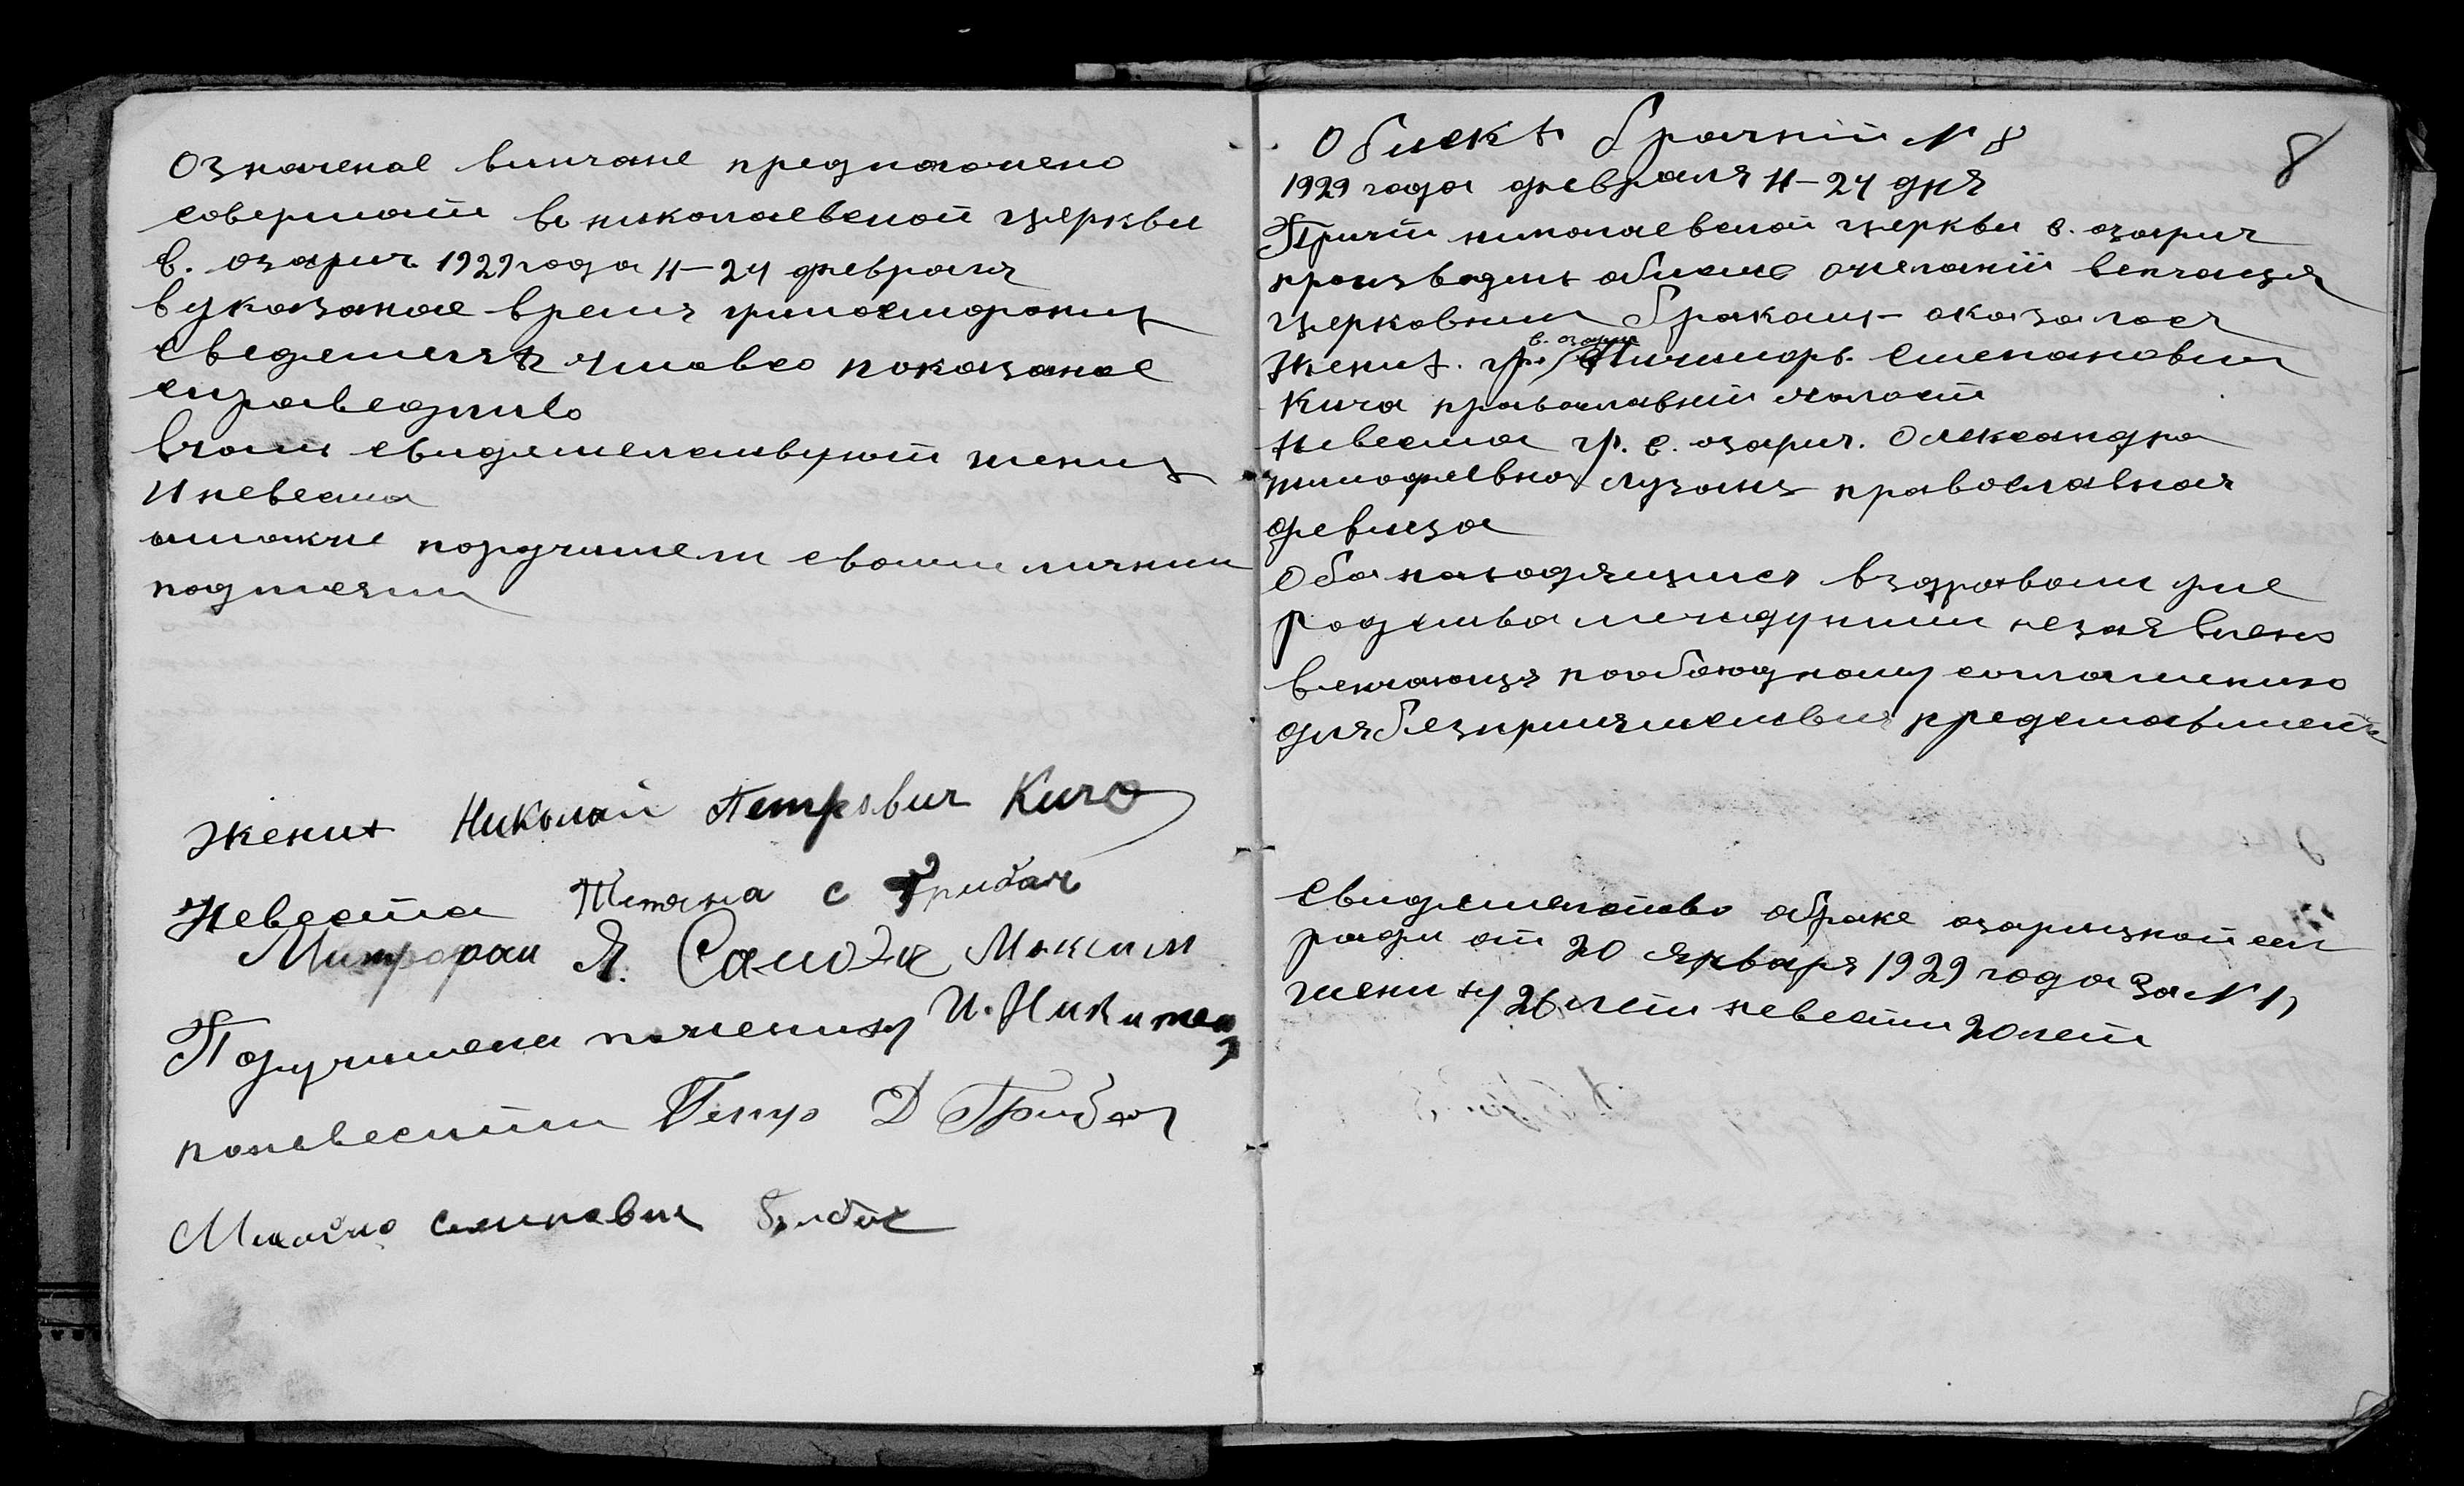 Означеное винчане предположено
совершати во николаевской церкви
с. озарич 1929 года 11–24 февраля
в указаное время
что все показаное
справедливо
в чом свидетельствуют жених
и невеста
а также поручители своими личними
подписями
жених Николай Петрович Кичо
невеста Титяна с Грибач
Митрофан Я. Максим
Поручители по жениху И. Никител
по невести Петр Д Грибач
Михайло
Обиск брачний № 8
8
1929 года февраля 11–24 дня
Причт николаевской церкви с. озарич
производил обиск о желаний венчаця
церковним браком оказалось
с. озарич
жених гр. степанович
Кича православний холост
невеста гр. с. озарич. Олександра
тимофеевна Лузан православная
девица
Оба находящиися в здравом уме
родства между ними не заявлено
венчаюця по обоюдному согласию
для безпрепятствия представили
свидетельство о браке озарицкой сел
ради от 20 января 1929 года за № 17
жениху 26 лет невести 20 лет